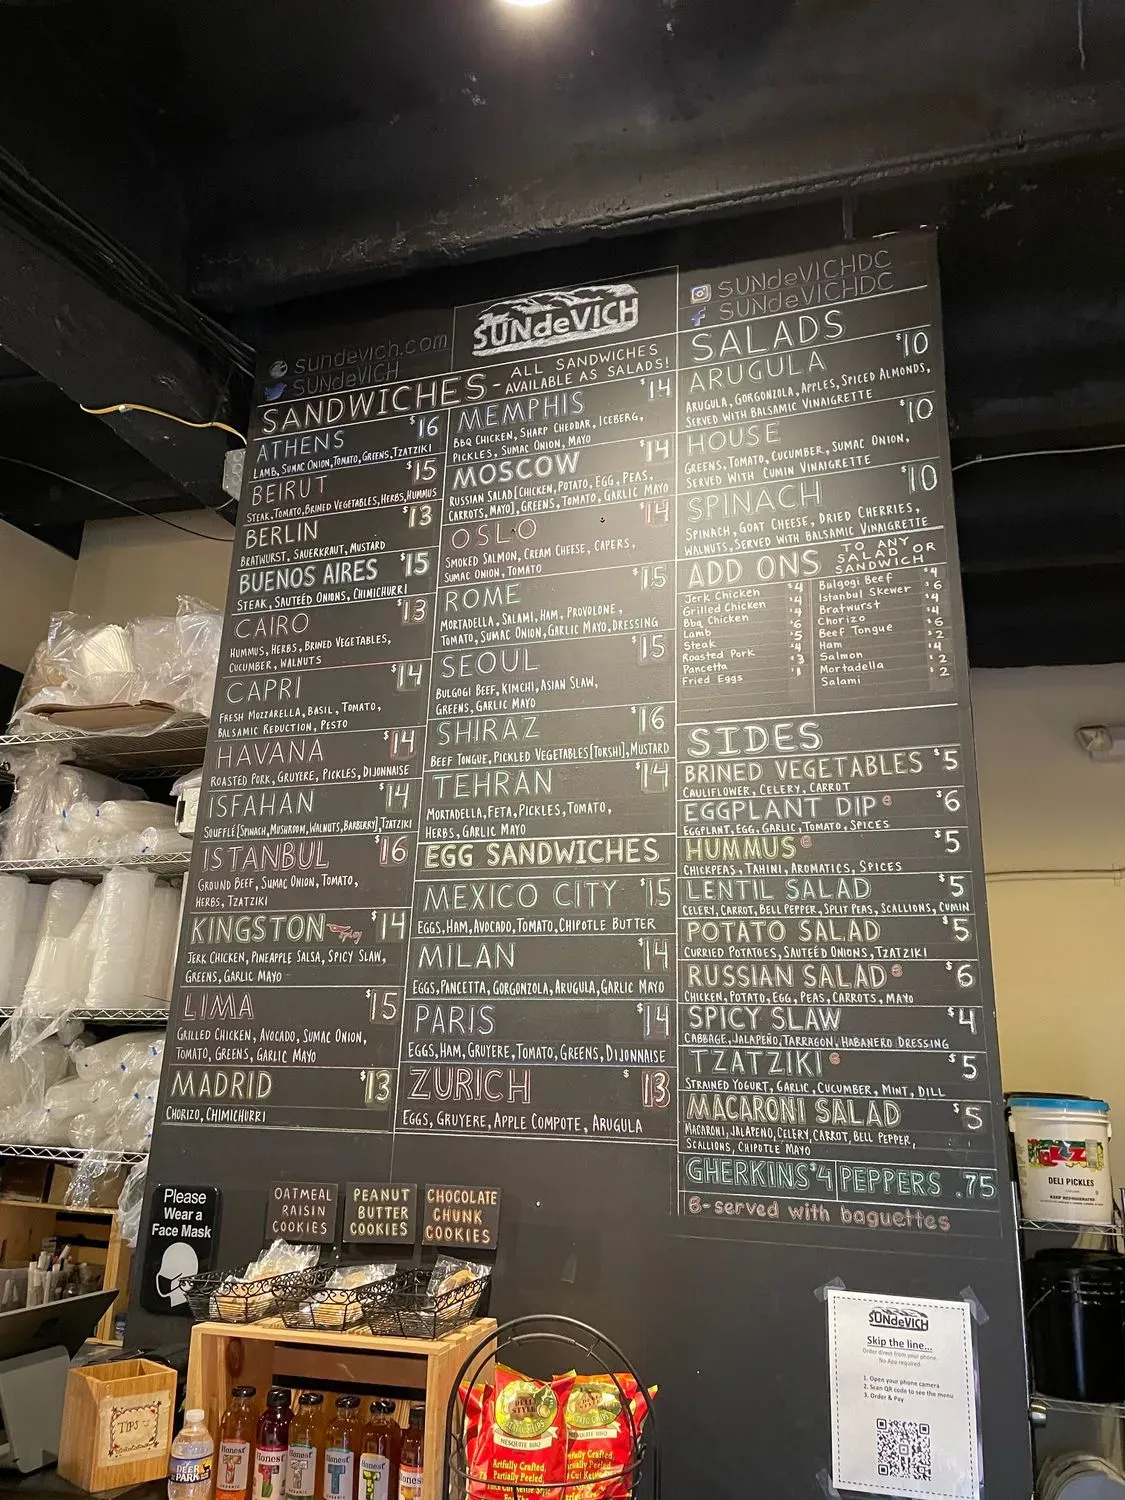 sundevich.com
SUNdeVICH
SUNdeVICH
SUNdeVICHDC
SUNdeVICHDC
SANDWICHES - ALL SANDWICHES
AVAILABLE AS SALADS!
ATHENS $16
LAMB, SUMAC ONION, TOMATO, GREENS, TZATZIKI
BEIRUT $15
STEAK, TOMATO, BRINED VEGETABLES, HERBS, HUMMUS
BERLIN $13
BRATWURST, SAUERKRAUT, MUSTARD
BUENOS AIRES $15
STEAK, SAUTEÉD ONIONS, CHIMICHURRI
CAIRO $13
HUMMUS, HERBS, BRINED VEGETABLES,
CUCUMBER, WALNUTS
CAPRI $14
FRESH MOZZARELLA, BASIL, TOMATO,
BALSAMIC REDUCTION, PESTO
HAVANA $14
ROASTED PORK, GRUYERE, PICKLES, DIJONNAISE
ISFAHAN $14
SOUFFLÉ [SPINACH, MUSHROOM, WALNUTS, BARBERRY], TZATZIKI
ISTANBUL $16
GROUND BEEF, SUMAC ONION, TOMATO,
HERBS, TZATZIKI
KINGSTON spicy $14
JERK CHICKEN, PINEAPPLE SALSA, SPICY SLAW,
GREENS, GARLIC MAYO
LIMA $15
GRILLED CHICKEN, AVOCADO, SUMAC ONION,
TOMATO, GREENS, GARLIC MAYO
MADRID $13
CHORIZO, CHIMICHURRI
MEMPHIS $14
BBQ CHICKEN, SHARP CHEDDAR, ICEBERG,
PICKLES, SUMAC ONION, MAYO
MOSCOW $14
RUSSIAN SALAD [CHICKEN, POTATO, EGG, PEAS,
CARROTS, MAYO], GREENS, TOMATO, GARLIC MAYO
OSLO $14
SMOKED SALMON, CREAM CHEESE, CAPERS,
SUMAC ONION, TOMATO
ROME $15
MORTADELLA, SALAMI, HAM, PROVOLONE,
TOMATO, SUMAC ONION, GARLIC MAYO, DRESSING
SEOUL $15
BULGOGI BEEF, KIMCHI, ASIAN SLAW,
GREENS, GARLIC MAYO
SHIRAZ $16
BEEF TONGUE, PICKLED VEGETABLES [TORSHI], MUSTARD
TEHRAN $14
MORTADELLA, FETA, PICKLES, TOMATO,
HERBS, GARLIC MAYO
EGG SANDWICHES
MEXICO CITY $15
EGGS, HAM, AVOCADO, TOMATO, CHIPOTLE BUTTER
MILAN $14
EGGS, PANCETTA, GORGONZOLA, ARUGULA, GARLIC MAYO
PARIS $14
EGGS, HAM, GRUYERE, TOMATO, GREENS, DIJONNAISE
ZURICH $13
EGGS, GRUYERE, APPLE COMPOTE, ARUGULA
SALADS
ARUGULA $10
ARUGULA, GORGONZOLA, APPLES, SPICED ALMONDS,
SERVED WITH BALSAMIC VINAIGRETTE
HOUSE $10
GREENS, TOMATO, CUCUMBER, SUMAC ONION,
SERVED WITH CUMIN VINAIGRETTE
SPINACH $10
SPINACH, GOAT CHEESE, DRIED CHERRIES,
WALNUTS, SERVED WITH BALSAMIC VINAIGRETTE
ADD ONS TO ANY
SALAD OR
SANDWICH
Jerk Chicken $4
Grilled Chicken $4
Bbq Chicken $4
Lamb $6
Steak $5
Roasted Pork $4
Pancetta $3
Fried Eggs $1
Bulgogi Beef $4
Istanbul Skewer $6
Bratwurst $4
Chorizo $4
Beef Tongue $6
Ham $2
Salmon $4
Mortadella $2
Salami $2
SIDES
BRINED VEGETABLES $5
CAULIFLOWER, CELERY, CARROT
EGGPLANT DIP B $6
EGGPLANT, EGG, GARLIC, TOMATO, SPICES
HUMMUS B $5
CHICKPEAS, TAHINI, AROMATICS, SPICES
LENTIL SALAD $5
CELERY, CARROT, BELL PEPPER, SPLIT PEAS, SCALLIONS, CUMIN
POTATO SALAD $5
CURRIED POTATOES, SAUTEÉD ONIONS, TZATZIKI
RUSSIAN SALAD B $6
CHICKEN, POTATO, EGG, PEAS, CARROTS, MAYO
SPICY SLAW $4
CABBAGE, JALAPEÑO, TARRAGON, HABANERO DRESSING
TZATZIKI B $5
STRAINED YOGURT, GARLIC, CUCUMBER, MINT, DILL
MACARONI SALAD $5
MACARONI, JALAPENO, CELERY, CARROT, BELL PEPPER,
SCALLIONS, CHIPOTLE MAYO
GHERKINS $4 PEPPERS .75
B-served with baguettes
Please
Wear a
Face Mask
OATMEAL
RAISIN
COOKIES
PEANUT
BUTTER
COOKIES
CHOCOLATE
CHUNK
COOKIES
TIPS
DEER
PARK
Honest
T
Honest
T
Honest
T
Honest
T
Honest
Honest
DELI
STYLE
MESQUITE BBQ
Artfully Crafted,
Partially Peeled,
POTATO CHIPS
MESQUITE BBQ
DELI PICKLES
KEEP REFRIGERATED
SUNdeVICH
Skip the line...
Order direct from your phone.
No App required.
1. Open your phone camera
2. Scan QR code to see the menu
3. Order & Pay